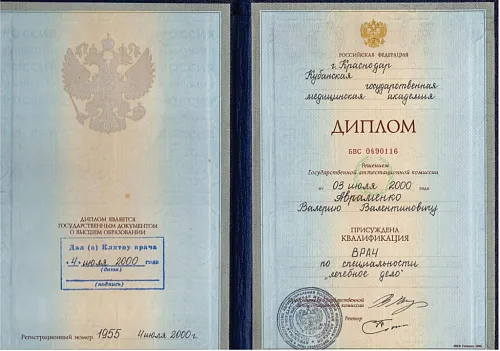 ДИПЛОМ ЯВЛЯЕТСЯ
ГОСУДАРСТВЕННЫМ ДОКУМЕНТОМ
О ВЫСШЕМ ОБРАЗОВАНИИ
Дал (а) Клятву врача
"4" июля 2000 года
(дата)
(подпись)
Регистрационный номер 1955 4 июля 2000 г.
РОССИЙСКАЯ ФЕДЕРАЦИЯ
г. Краснодар
Кубанская государственная
медицинская академия
ДИПЛОМ
БВС 0490116
Решением
Государственной аттестационной комиссии
от 03 июля 2000 года
Авраменко
Валерию Валентиновичу
ПРИСУЖДЕНА
КВАЛИФИКАЦИЯ
ВРАЧ
по специальности
„лечебное дело"
Государственной
аттестационной комиссии
Ректор